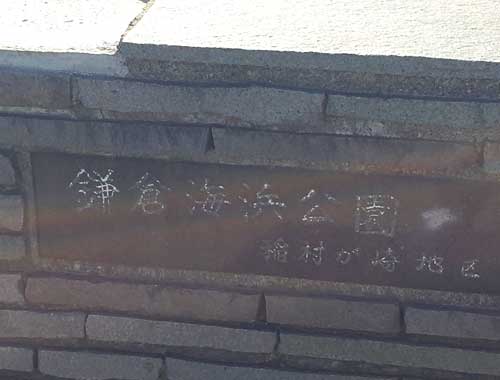 鎌倉海浜公園
稲村が崎地区